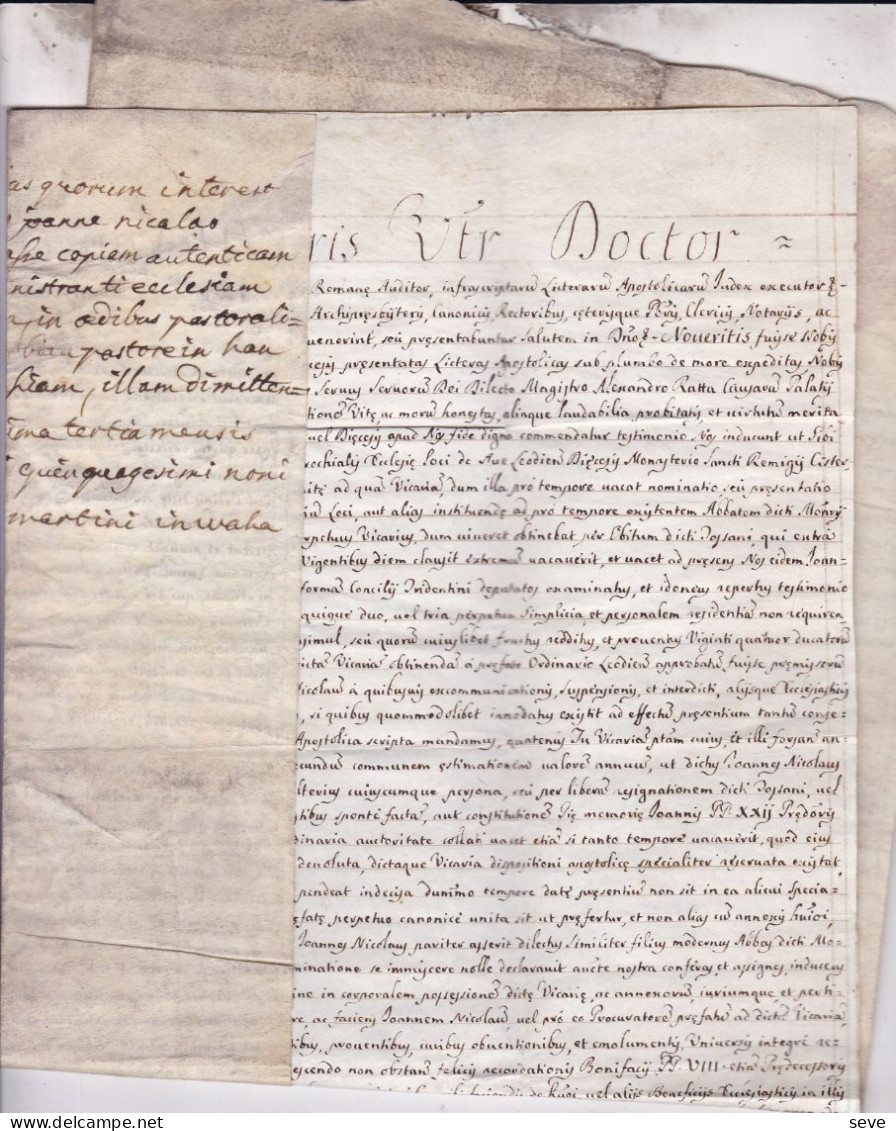 quorum interest
joanne nicalao
copiam autenticam
nistranti ecclesiam
in œdibus pastorali=
pastore in han
illam dimitten=
tertia mensis
quenquagesimi noni
martini in waha
ris Vtr Doctor =
Romanę Auditor, infrascriptarū Licterarū Apostolicarū Iudex executor
Archipręsbyterij, Canonicis, Rectoribus, cęterisque Clericis, Notarijs, ac
uenerint, seù pręsentabuntur salutem in Dnō. Noueritis fuisse Nobis
pręsentatas Licteras Apostolicas sub plumbo de more expeditas, Nobis
Seruus Seruorū Dei Dilecto Magistro Alexandro Ratta Causarū Palatij
tionē Vitę, ac morū honestas, aliaque laudabilia probitatis, et uirtutū merita
uel Dięcesis apud Nos fide digno commendatur testimonio Nos inducunt ut Sibi
rochialis Ecclesię Loci de Aue Leodien Dięcesis Monasterio Sancti Remigij Cister
ad quā Vicaria, dum illa pro tempore uacat nominatio, seù pręsentatio
Loci, aut alias instituendę ad pro tempore existentem Abbatem dicti Monrij
rpetuus Vicarius, dum uiueret obtinebat per Obitum dicti Possani, qui extra
Vigentibus diem clausit extremū uacauerit, et uacet ad pręsens Nos eidem Ioan-
formā Concilij Tridentini deputatos examinatus, et idoneus repertus testimonio
quique duo, uel tria perpetua Simplicia, et personalem residentiā non requiren-
simul, seù quorū cuiuslibet fructus redditus, et prouentus Viginti quatuor ducatorū
icta Vicaria obtinenda à prefato Ordinario Leodien approbatū fuisse pręmissorū
Nicolaū à quibusuis excommunicationis, suspensionis, et interdicti, alijsque Ecclesiasticis
si quibus quommodolibet innodatus existit ad effectū pręsentium tantū conse-
Apostolica scripta mandamus, quatenus Tu Vicariā ptam cuius, et illi forsan an-
cundū communem ęstimationem ualorē annuū, ut dictus Ioannes Nicolaus
lterius cuiuscumque persona, seù per liberā resignationem dicti Possani, uel
stibus sponte facta, aut constitutionē Pię memorię Ioannis PP. XXIJ Prędoris
dinaria auctoritate collata uacet etiā si tanto tempore uacauerit, quod eius
deuoluta, dictaque Vicaria dispositioni apostolicę specialiter reseruata existat
pendeat indecisa dunmo tempore datę pręsentiū non sit in ea alicui specia-
perpetuo canonicè unita sit ut pręfertur, et non alias cū annexis huiūi,
Ioannes Nicolaus pariter asserit dilectus similiter filius modernus Abbas dicti Mo-
minatione se immiscere nolle declarauit aucte nostra conferas et assignes, inducens
ine in corporalem possessionē dictę Vicarię, ac annexorū, iuriumque, et perti-
re, ac faciens Ioannem Nicolaū, uel pro eo Procuratorē pręfatū ad dictā Vicariā
tibus, prouentibus, iuribus obuentionibus, et emolumentis, Uniuersis integrè re-
escendo non obstantē felicis recordationis Bonifacij PP. VIII. etiā Prędecessoris
uel alijs Beneficijs Ecclesiasticis in illis
seve